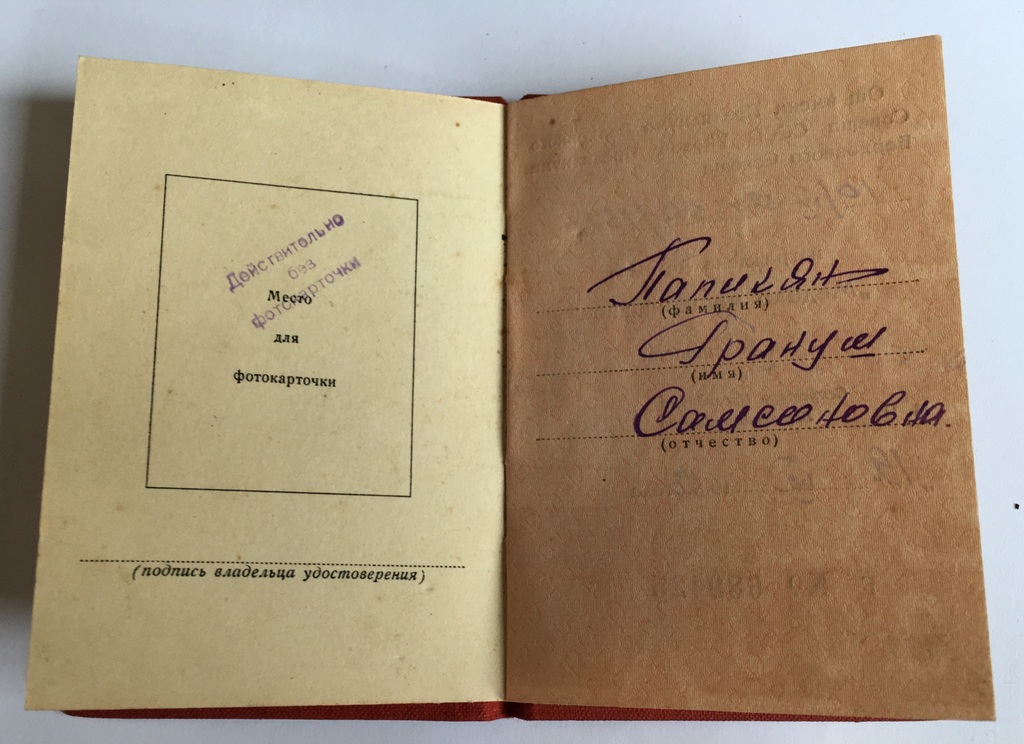 Действительно
без
фотокарточки
Место
для
фотокарточки
(подпись владельца удостоверения)
Папикян
(фамилия)
Грануш
(имя)
Самсоновна.
(отчество)